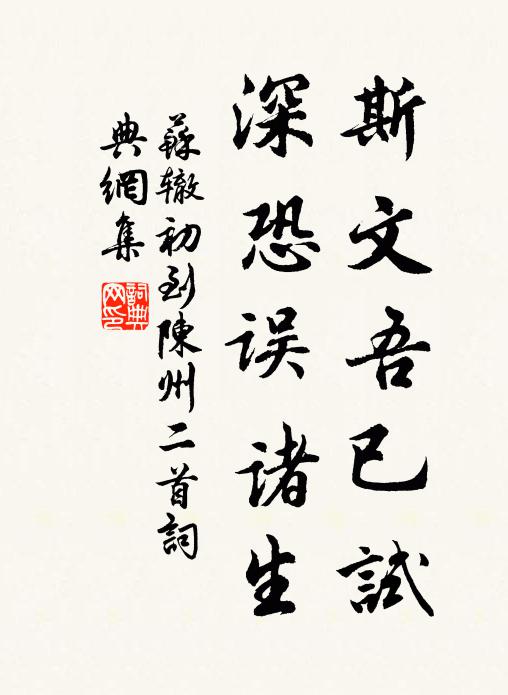 斯文吾已試
深恐误諸生
蘇辙初到陳州二首詞
典網集
詞典网印